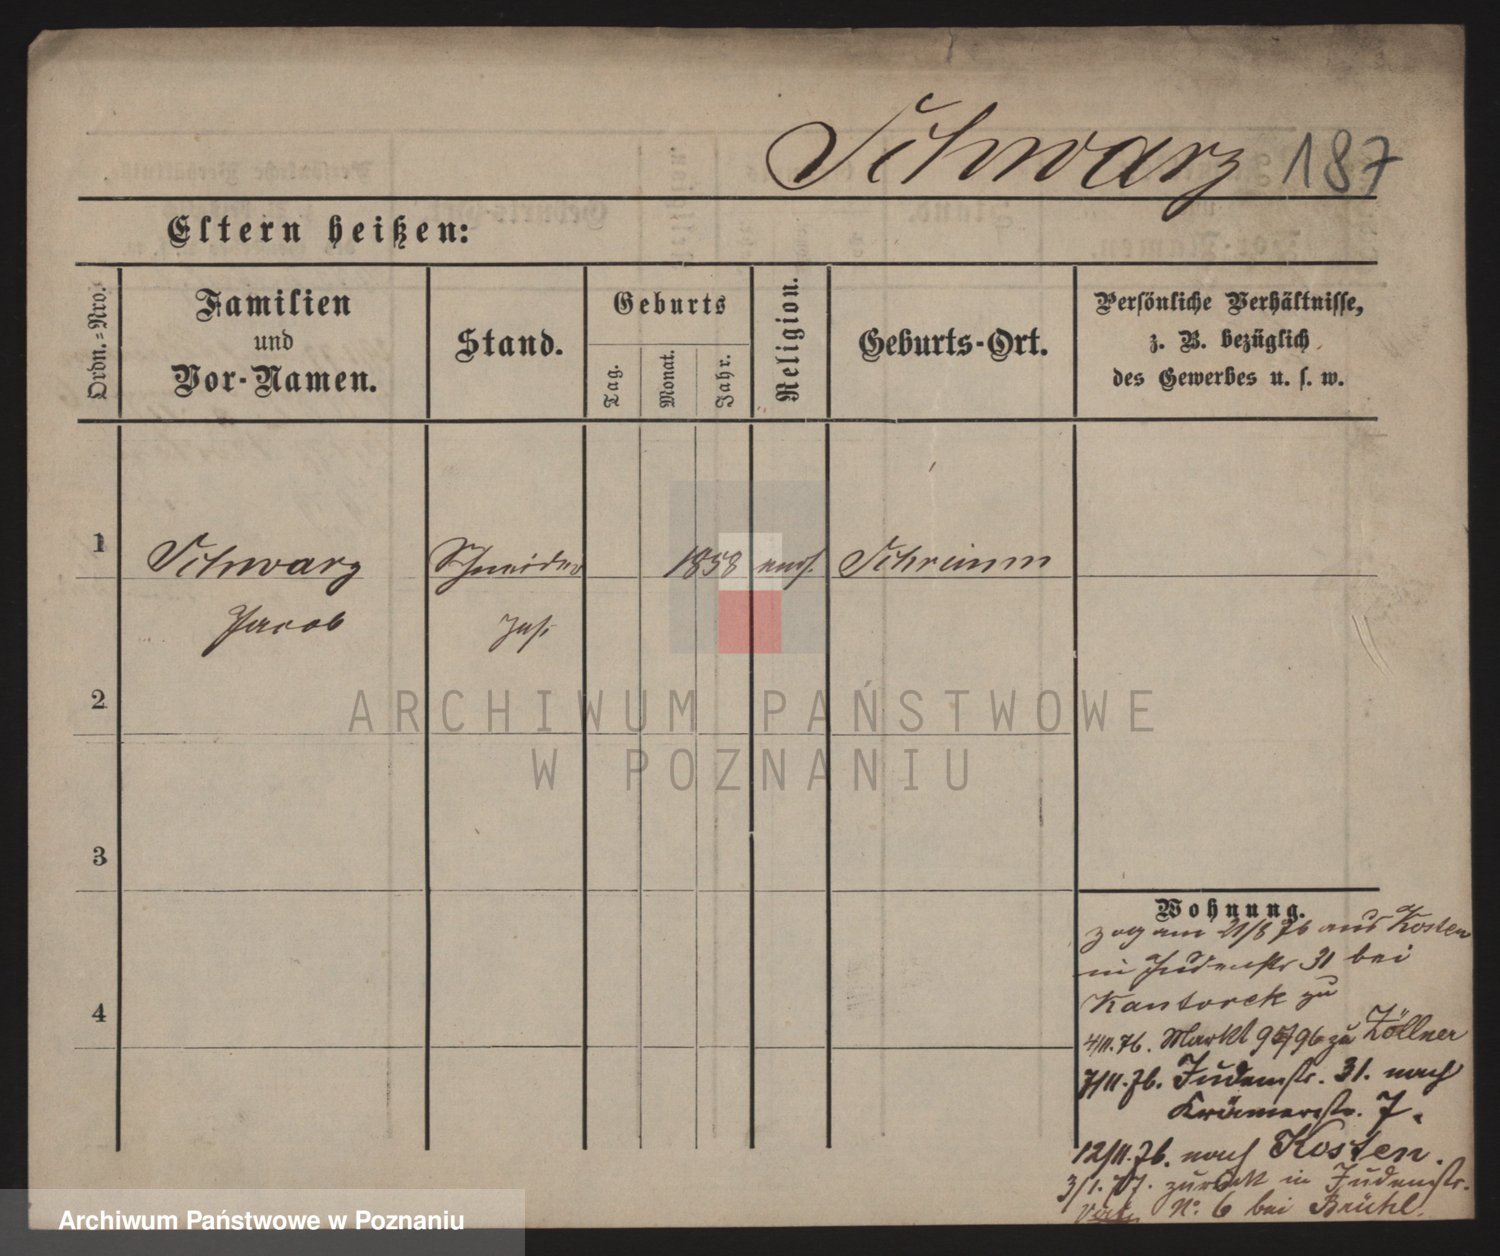 Schwarz 187
Eltern heißen:
Ordn.=Nro.
Familien
und
Vor-Namen.
Stand.
Geburts
Tag.
Monat.
Jahr.
Religion.
Geburts-Ort.
Persönliche Verhältnisse,
z. B. bezüglich
des Gewerbes u. s. w.
1
Schwarz
Jacob
Schneider
1858
Schrimm
2
3
4
Wohnung.
zog am 21/8 76 aus Kosten
in Judenstr 31 bei
Kantorek zu
4/11. 76. Markt 95/96 zu Zöllner
7/11. 76. Judenstr. 31. nach
Krämerstr. 7.
12/11. 76. nach Kosten.
3/1. 77. zurück in Judenstr.
No. 6 bei Brühl.
ARCHIWUM PAŃSTWOWE
W POZNANIU
Archiwum Państwowe w Poznaniu